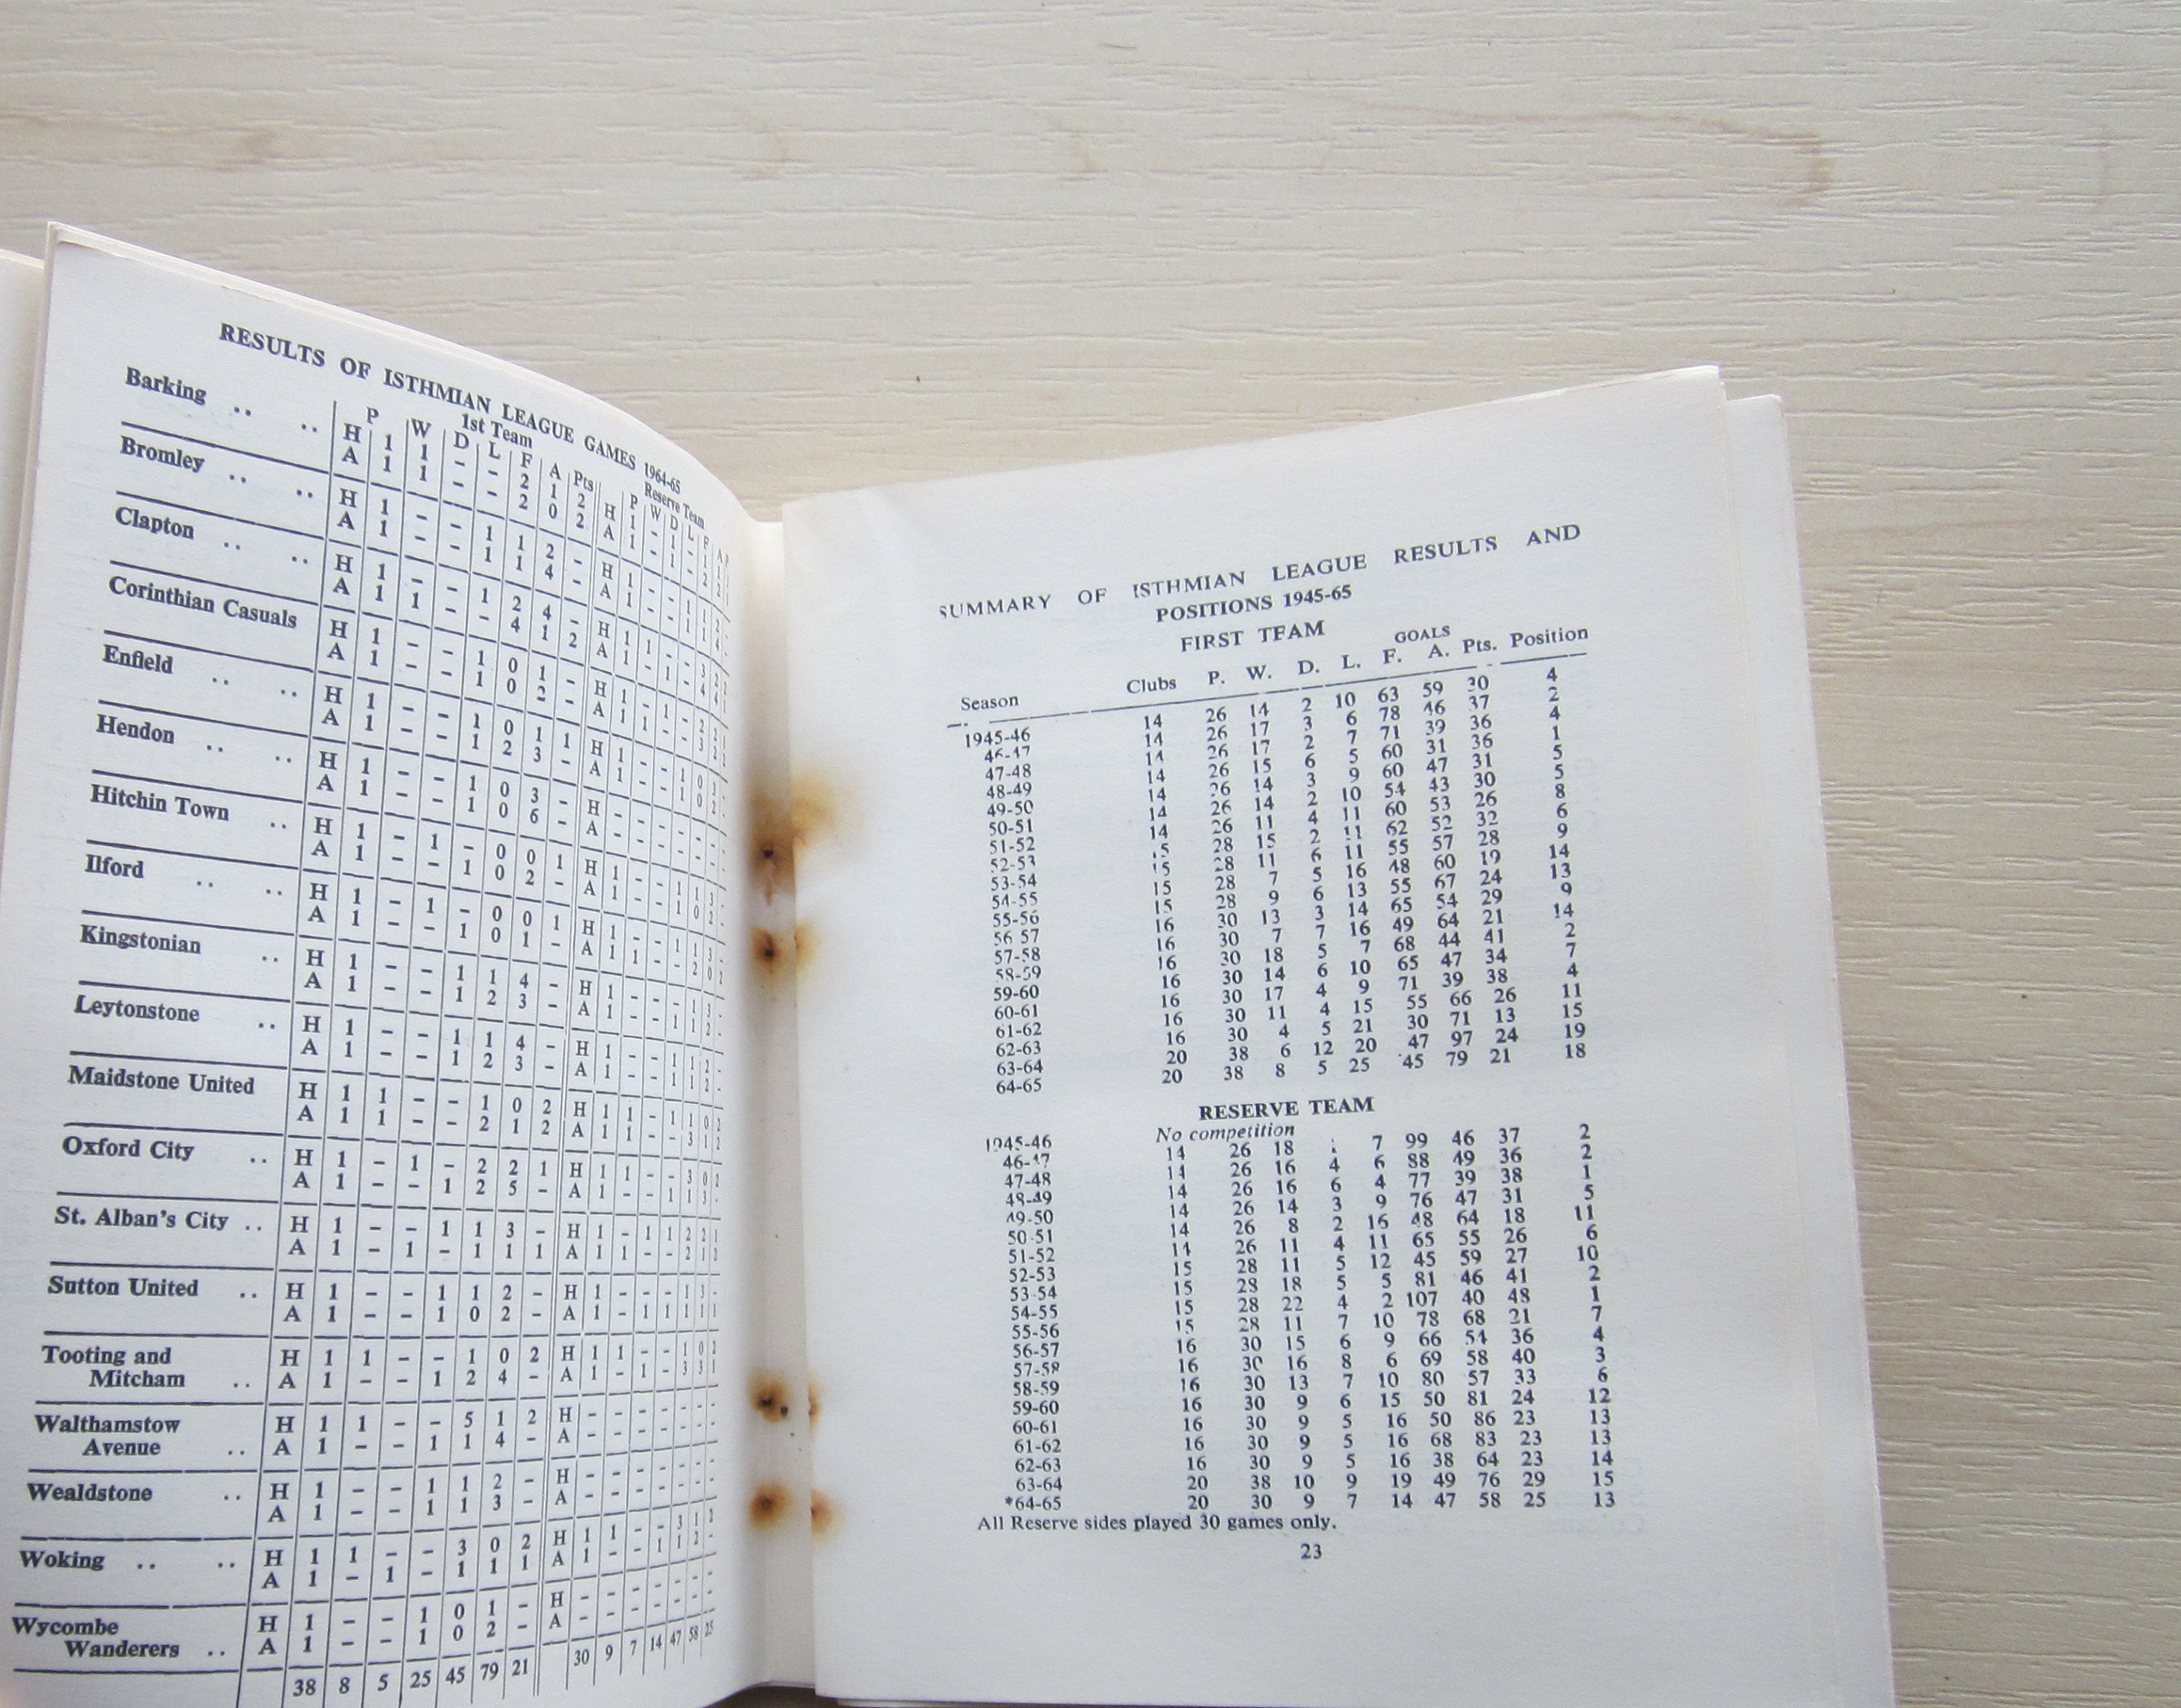 RESULTS OF ISTHMIAN LEAGUE GAMES 1964-65
1st Team Reserve Team
P W D L F A Pts P W D L F A P
Barking .. .. H 1 1 - - 2 1 2 H 1 - 1 -
A 1 1 - - 2 0 2 A 1 - 1 -
Bromley .. .. H 1 - - 1 1 2 - H 1 - - 1
A 1 - - 1 1 4 - A 1 - - 1
Clapton .. .. H 1 - - 1 2 4 - H 1 1 - -
A 1 1 - - 4 1 2 A 1 - 1 -
Corinthian Casuals H 1 - - 1 0 1 - H 1 - 1 -
A 1 - - 1 0 2 - A 1 1 - -
Enfield .. .. H 1 - - 1 0 1 1 H 1 - - 1
A 1 - - 1 2 3 - A 1 - - 1
Hendon .. .. H 1 - - 1 0 3 - H - - - - - - -
A 1 - - 1 0 6 - A - - - - - - -
Hitchin Town .. H 1 - 1 - 0 0 1 H 1 - - 1
A 1 - - 1 0 2 - A 1 - - 1
Ilford .. .. H 1 - 1 - 0 0 1 H 1 - - 1
A 1 - - 1 0 1 - A 1 1 - -
Kingstonian .. H 1 - - 1 1 4 - H 1 - - 1
A 1 - - 1 2 3 - A 1 - - 1
Leytonstone .. H 1 - - 1 1 4 - H 1 - - 1
A 1 - - 1 2 3 - A 1 - - 1
Maidstone United H 1 1 - - 1 0 2 H 1 1 -
A 1 1 - - 2 1 2 A 1 1 - - 3 1 2
Oxford City .. H 1 - 1 - 2 2 1 H 1 1 - - 3 0 2
A 1 - - 1 2 5 - A 1 - - 1 1 3 -
St. Alban's City .. H 1 - - 1 1 3 - H 1 - 1
A 1 - 1 - 1 1 1 A 1 1 - - 2 1 2
Sutton United .. H 1 - - 1 1 2 - H 1 - -
A 1 - - 1 0 2 - A 1 - 1
Tooting and H 1 1 - - 1 0 2 H 1 1 - - 1 0 2
Mitcham .. A 1 - - 1 2 4 - A 1 - 1 - 3 3 1
Walthamstow H 1 1 - - 5 1 2 H - - - - - - -
Avenue .. A 1 - - 1 1 4 - A - - - - - - -
Wealdstone .. H 1 - - 1 1 2 - H - - - - - - -
A 1 - - 1 1 3 - A - - - - - - -
Woking .. .. H 1 1 - - 3 0 2 H 1 1 - - 3 1 2
A 1 - 1 - 1 1 1 A 1 - - 1 1 2 -
Wycombe H 1 - - 1 0 1 - H - - - - - - -
Wanderers .. A 1 - - 1 0 2 - A - - - - - - -
38 8 5 25 45 79 21 30 9 7 14 47 58 25
SUMMARY OF ISTHMIAN LEAGUE RESULTS AND
POSITIONS 1945-65
FIRST TEAM
GOALS
Season Clubs P. W. D. L. F. A. Pts. Position
1945-46 14 26 14 2 10 63 59 30 4
46-47 14 26 17 3 6 78 46 37 2
47-48 14 26 17 2 7 71 39 36 4
48-49 14 26 15 6 5 60 31 36 1
49-50 14 26 14 3 9 60 47 31 5
50-51 14 26 14 2 10 54 43 30 5
51-52 14 26 11 4 11 60 53 26 8
52-53 15 28 15 2 11 62 52 32 6
53-54 15 28 11 6 11 55 57 28 9
54-55 15 28 7 5 16 48 60 19 14
55-56 15 28 9 6 13 55 67 24 13
56 57 16 30 13 3 14 65 54 29 9
57-58 16 30 7 7 16 49 64 21 14
58-59 16 30 18 5 7 68 44 41 2
59-60 16 30 14 6 10 65 47 34 7
60-61 16 30 17 4 9 71 39 38 4
61-62 16 30 11 4 15 55 66 26 11
62-63 16 30 4 5 21 30 71 13 15
63-64 20 38 6 12 20 47 97 24 19
64-65 20 38 8 5 25 45 79 21 18
RESERVE TEAM
1945-46 No competition
46-47 14 26 18 7 99 46 37 2
47-48 14 26 16 4 6 88 49 36 2
48-49 14 26 16 6 4 77 39 38 1
49-50 14 26 14 3 9 76 47 31 5
50-51 14 26 8 2 16 48 64 18 11
51-52 14 26 11 4 11 65 55 26 6
52-53 15 28 11 5 12 45 59 27 10
53-54 15 28 18 5 5 81 46 41 2
54-55 15 28 22 4 2 107 40 48 1
55-56 15 28 11 7 10 78 68 21 7
56-57 16 30 15 6 9 66 54 36 4
57-58 16 30 16 8 6 69 58 40 3
58-59 16 30 13 7 10 80 57 33 6
59-60 16 30 9 6 15 50 81 24 12
60-61 16 30 9 5 16 50 86 23 13
61-62 16 30 9 5 16 68 83 23 13
62-63 16 30 9 5 16 38 64 23 14
63-64 20 38 10 9 19 49 76 29 15
*64-65 20 30 9 7 14 47 58 25 13
All Reserve sides played 30 games only.
23